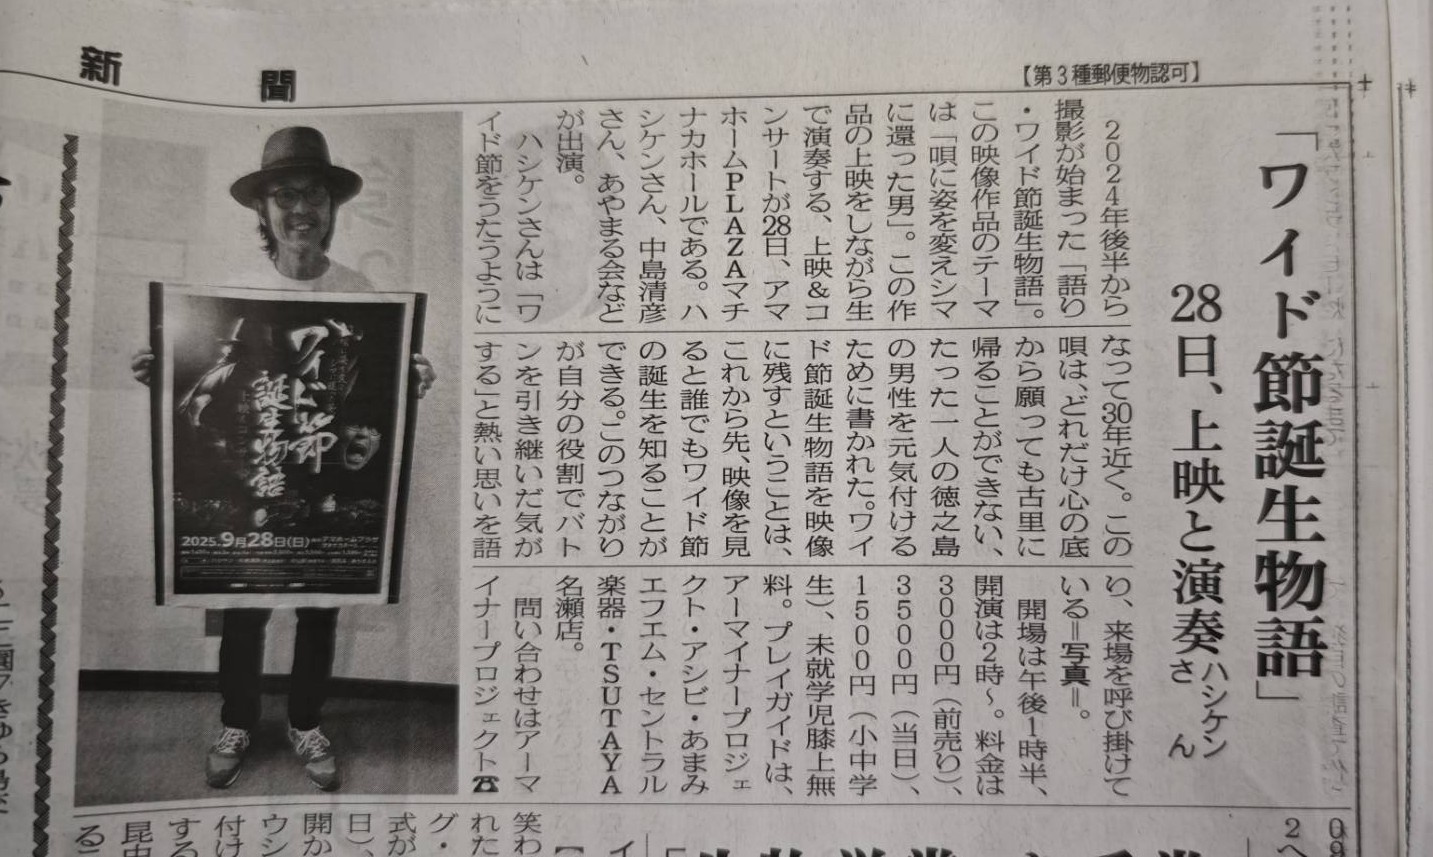 新聞
【第3種郵便物認可】
「ワイド節誕生物語」
28日、上映と演奏
ハシケン
さん
2024年後半から
撮影が始まった「語り
・ワイド節誕生物語」。
この映像作品のテーマ
は「唄に姿を変えシマ
に還った男」。この作
品の上映をしながら生
で演奏する、上映&コ
ンサートが28日、アマ
ホームPLAZAマチ
ナカホールである。ハ
シケンさん、中島清彦
さん、あやまる会など
が出演。
ハシケンさんは「ワ
イド節をうたうように
なって30年近く。この
唄は、どれだけ心の底
から願っても古里に
帰ることができない、
たった一人の徳之島
の男性を元気付ける
ために書かれた。ワイ
ド節誕生物語を映像
に残すということは、
これから先、映像を見
ると誰でもワイド節
の誕生を知ることが
できる。このつながり
が自分の役割でバト
ンを引き継いだ気が
する」と熱い思いを語
り、来場を呼び掛けて
いる=写真=。
開場は午後1時半、
開演は2時～。料金は
3000円(前売り)、
3500円(当日)、
1500円(小中学
生)、未就学児膝上無
料。プレイガイドは、
アーマイナープロジェ
クト・アシビ・あまみ
エフエム・セントラル
楽器・TSUTAYA
名瀬店。
問い合わせはアーマ
イナープロジェクト☎
ワイド節
誕生物語
2025.9月28日(日)
笑わ
れた
グ・
式が
日)、
開か
ウシ
付け
する
昆虫